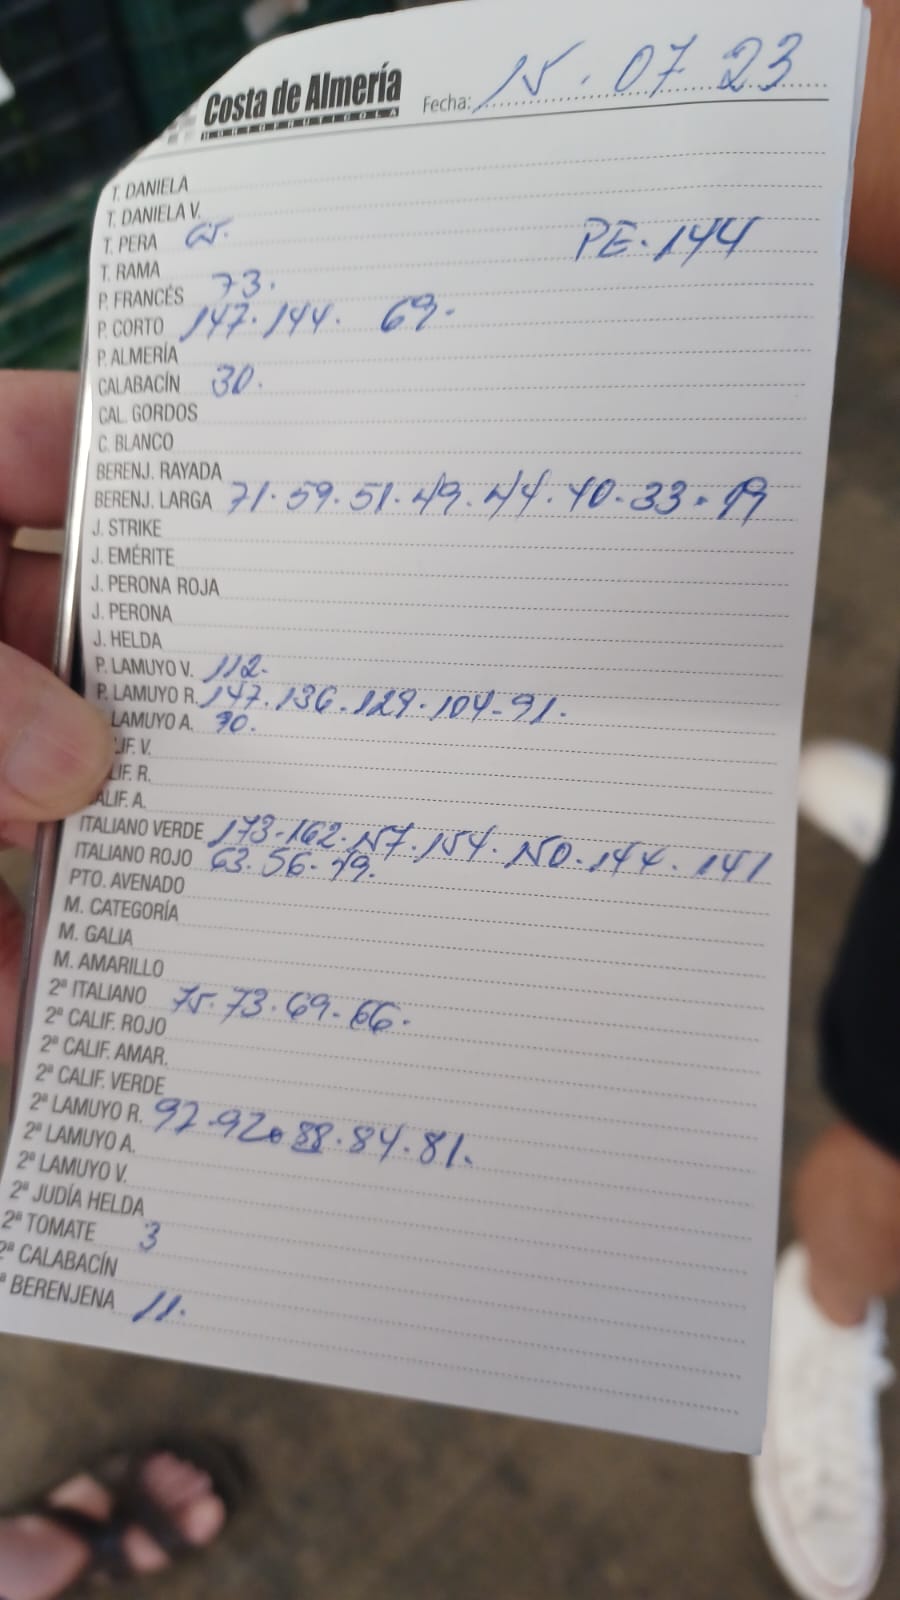 Costa de Almería
HORTOFRUTICOLA
Fecha: 15.07 23
T. DANIELA
T. DANIELA V.
T. PERA 65. PE. 144
T. RAMA
P. FRANCÉS 73.
P. CORTO 147. 144. 69.
P. ALMERÍA
CALABACÍN 30.
CAL. GORDOS
C. BLANCO
BERENJ. RAYADA
BERENJ. LARGA 71. 59. 51. 49. 44. 40. 33. 19
J. STRIKE
J. EMÉRITE
J. PERONA ROJA
J. PERONA
J. HELDA
P. LAMUYO V. 112.
P. LAMUYO R. 147. 136. 129. 104. 91.
LAMUYO A. 90.
LIF. V.
LIF. R.
ALIF. A.
ITALIANO VERDE 173. 162. 157. 154. 150. 144. 141
ITALIANO ROJO 63. 56. 49.
PTO. AVENADO
M. CATEGORÍA
M. GALIA
M. AMARILLO
2ª ITALIANO 75. 73. 69. 66.
2ª CALIF. ROJO
2ª CALIF. AMAR.
2ª CALIF. VERDE
2ª LAMUYO R. 97. 92. 88. 84. 81.
2ª LAMUYO A.
2ª LAMUYO V.
2ª JUDÍA HELDA
2ª TOMATE 3
2ª CALABACÍN
ª BERENJENA 11.